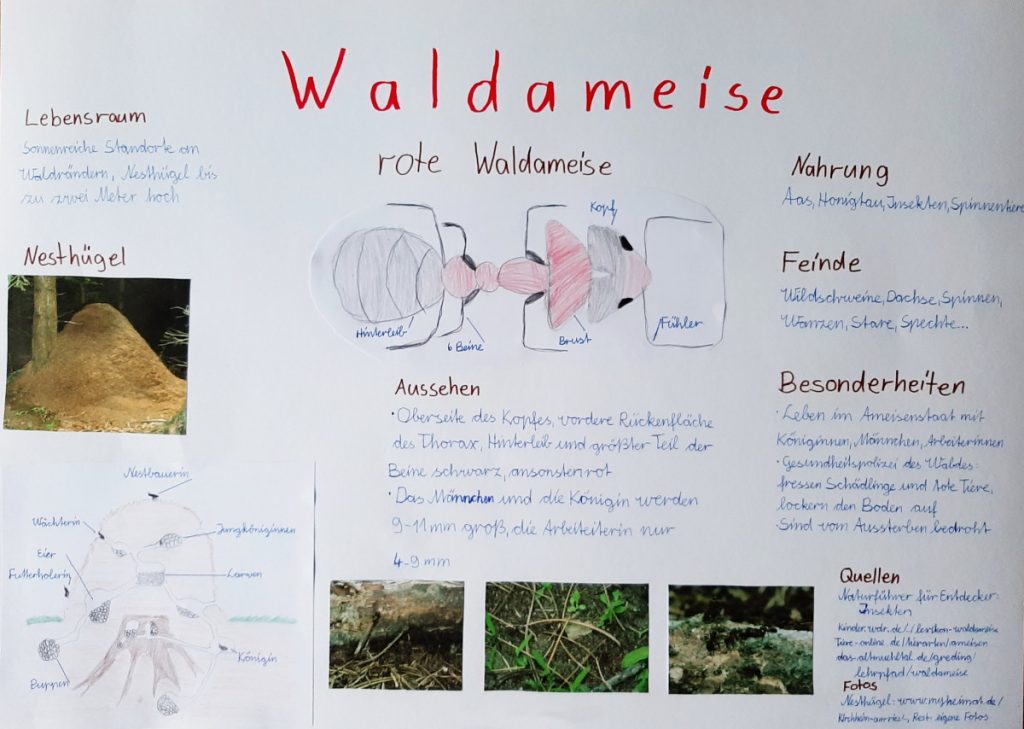 Waldameise
Lebensraum
Sonnenreiche Standorte an
Waldrändern, Nesthügel bis
zu zwei Meter hoch
Nesthügel
Nestbauerin
Wächterin
Jungköniginnen
Eier
Futterholerin
Larven
Königin
Puppen
rote Waldameise
Kopf
Hinterleib
6 Beine
Brust
Fühler
Aussehen
· Oberseite des Kopfes, vordere Rückenfläche
des Thorax, Hinterleib und größter Teil der
Beine schwarz, ansonsten rot
· Das Männchen und die Königin werden
9-11 mm groß, die Arbeiterin nur
4-9 mm
Nahrung
Aas, Honigtau, Insekten, Spinnentiere
Feinde
Wildschweine, Dachse, Spinnen,
Wanzen, Stare, Spechte...
Besonderheiten
· Leben im Ameisenstaat mit
Königinnen, Männchen, Arbeiterinnen
· Gesundheitspolizei des Waldes:
fressen Schädlinge und tote Tiere,
lockern den Boden auf
· Sind vom Aussterben bedroht
Quellen
Naturführer für Entdecker:
Insekten
kinder.wdr.de/
tiere-online.de/tierarten/ameisen
das-altmuehltal.de/greding/
lehrpfad/waldameise
Fotos
Nesthügel: www.myheimat.de/
Rest: eigene Fotos